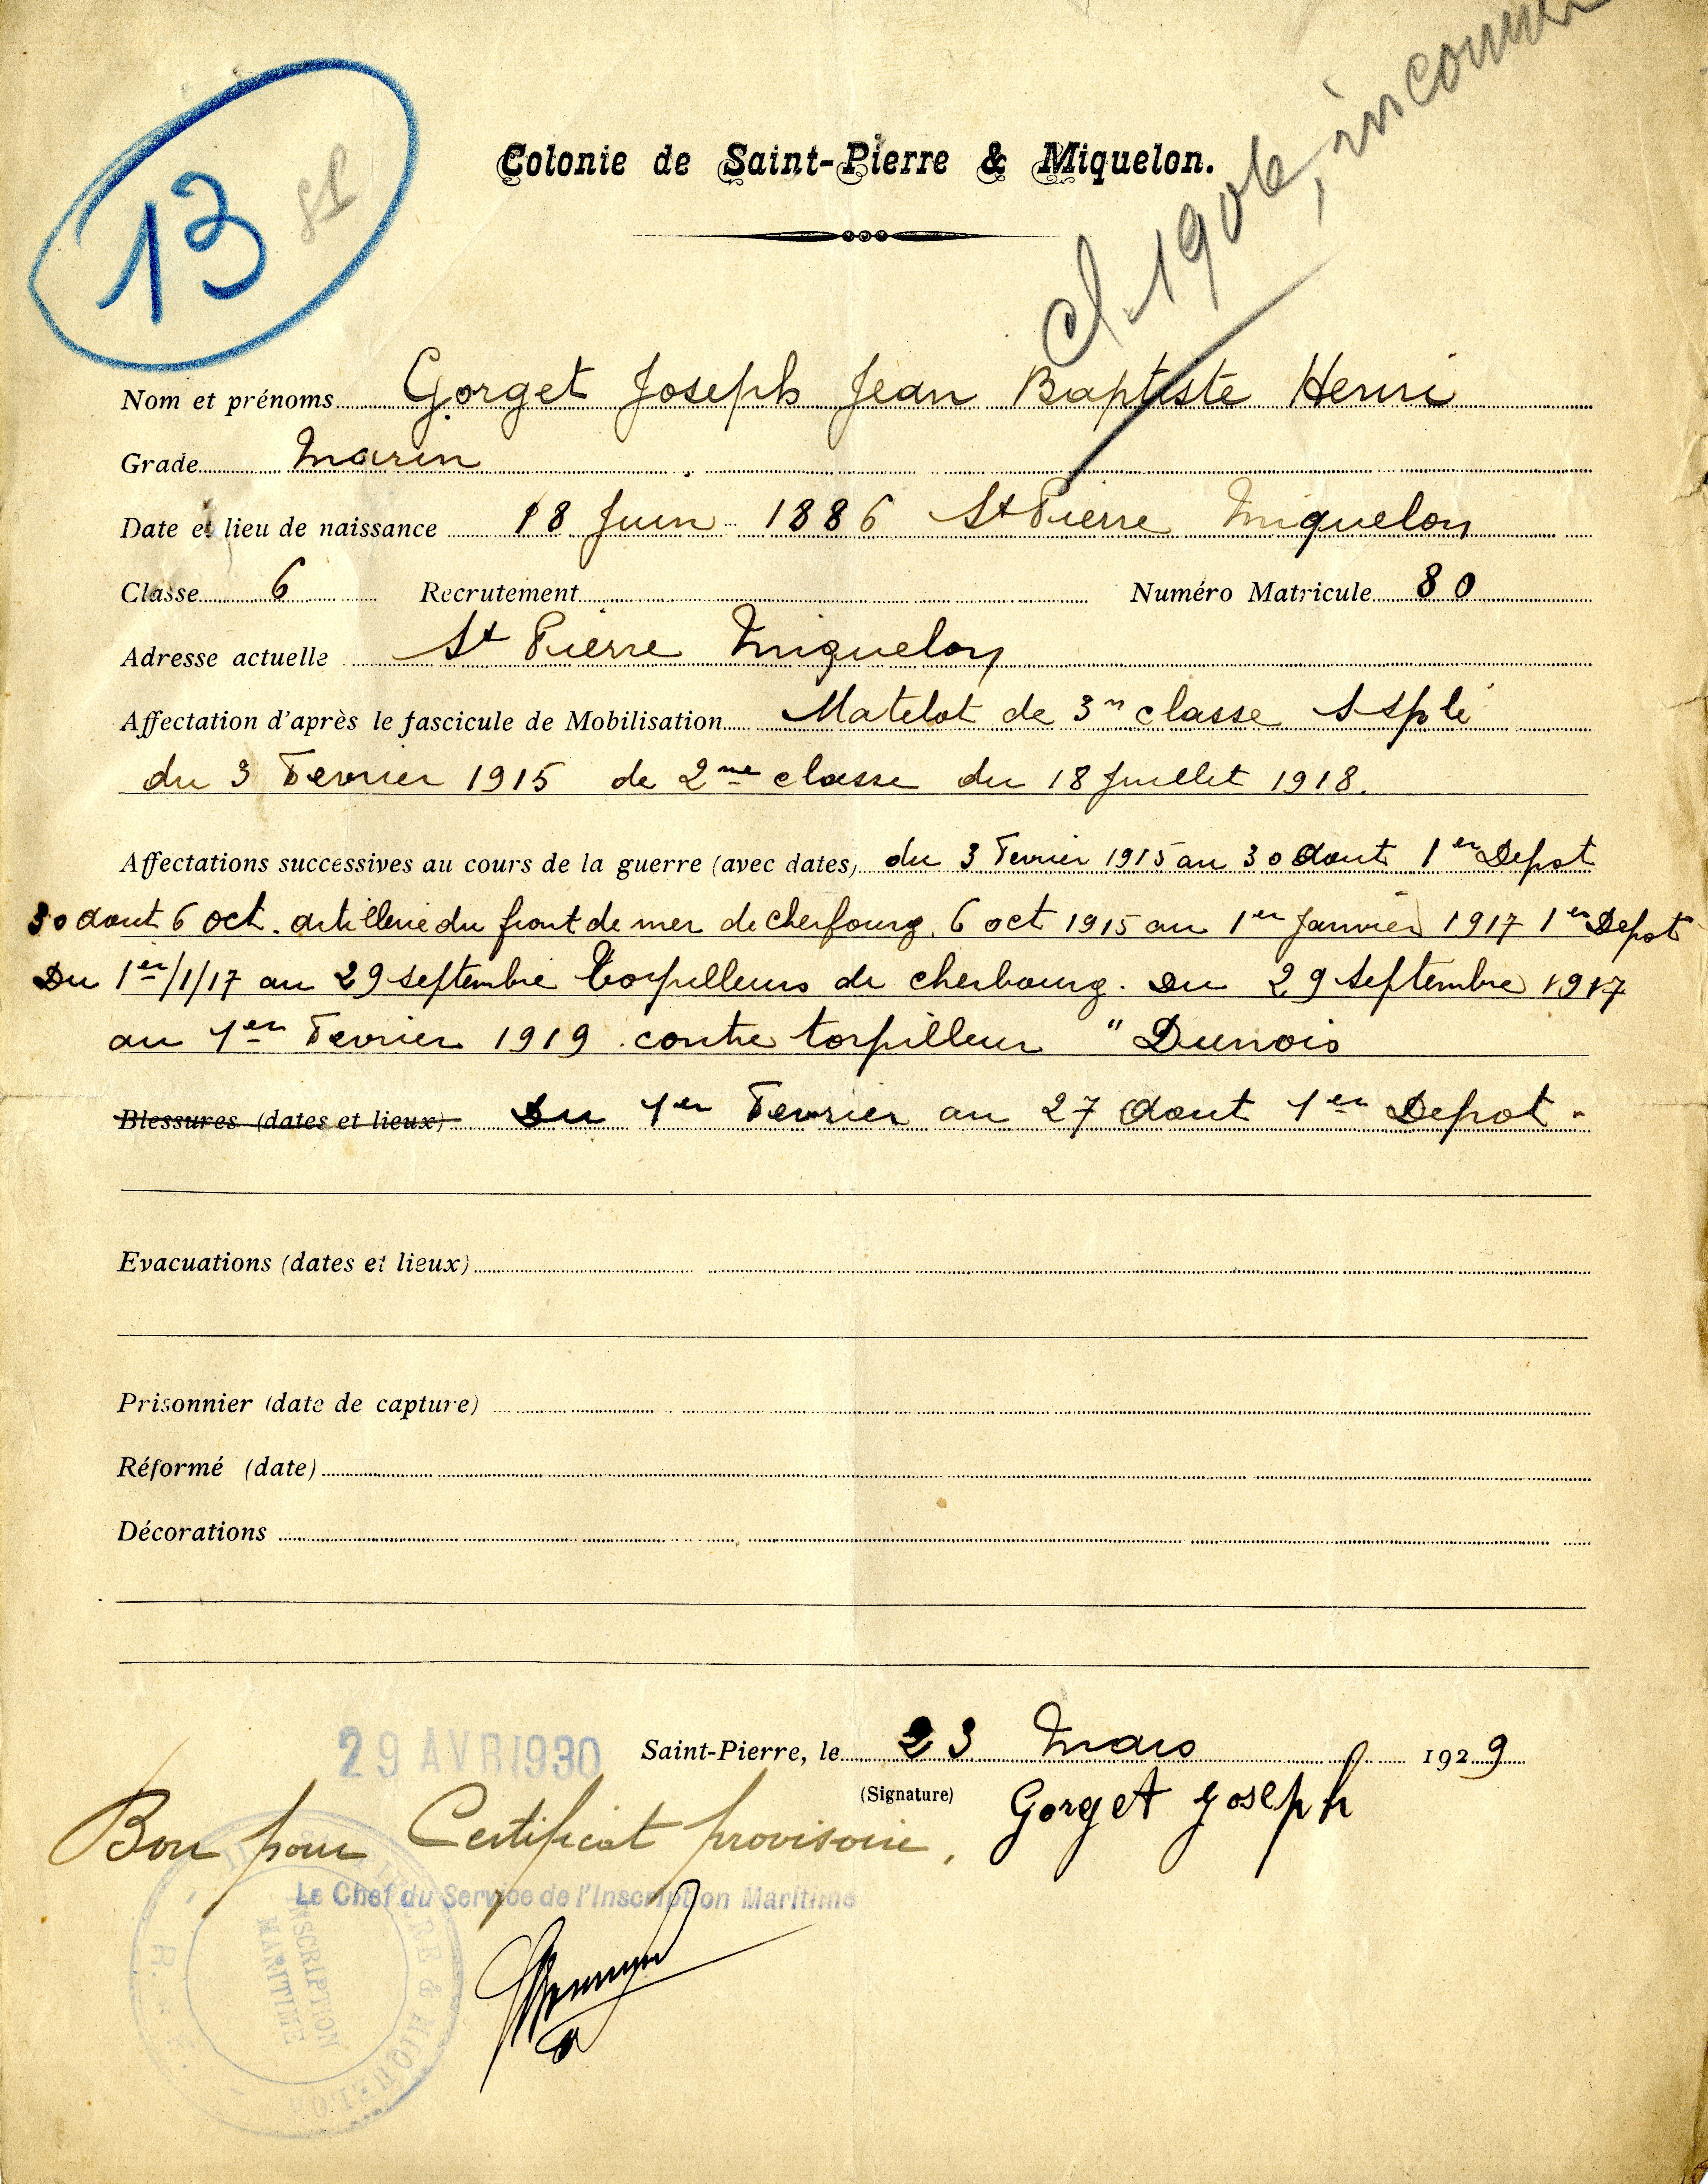 cl. 1906, inconnu
13
Colonie de Saint-Pierre & Miquelon.
Nom et prénoms Gorget Joseph Jean Baptiste Henri
Grade Marin
Date et lieu de naissance 18 Juin 1886 St Pierre Miquelon
Classe 6 Recrutement Numéro Matricule 80
Adresse actuelle St Pierre Miquelon
Affectation d'après le fascicule de Mobilisation Matelot de 3me classe
du 3 Fevrier 1915 de 2me classe du 18 Juillet 1918.
Affectations successives au cours de la guerre (avec dates) du 3 Fevrier 1915 au 30 Aout 1er Depot
30 aout 6 oct. artillerie du front de mer de Cherbourg. 6 oct 1915 au 1er Janvier 1917 1er Depot
Du 1er/1/17 au 29 septembre torpilleurs de cherbourg. Du 29 Septembre 1917
au 1er Fevrier 1919 contre torpilleur " Dunois
Blessures (dates et lieux) Du 1er Fevrier au 27 Aout 1er Depot.
Evacuations (dates et lieux)
Prisonnier (date de capture)
Réformé (date)
Décorations
29 AVR 1930 Saint-Pierre, le 23 Mars 1929
(Signature) Gorget Joseph
Bon pour Certificat provisoire.
Le Chef du Service de l'Inscription Maritime
INSCRIPTION
MARITIME